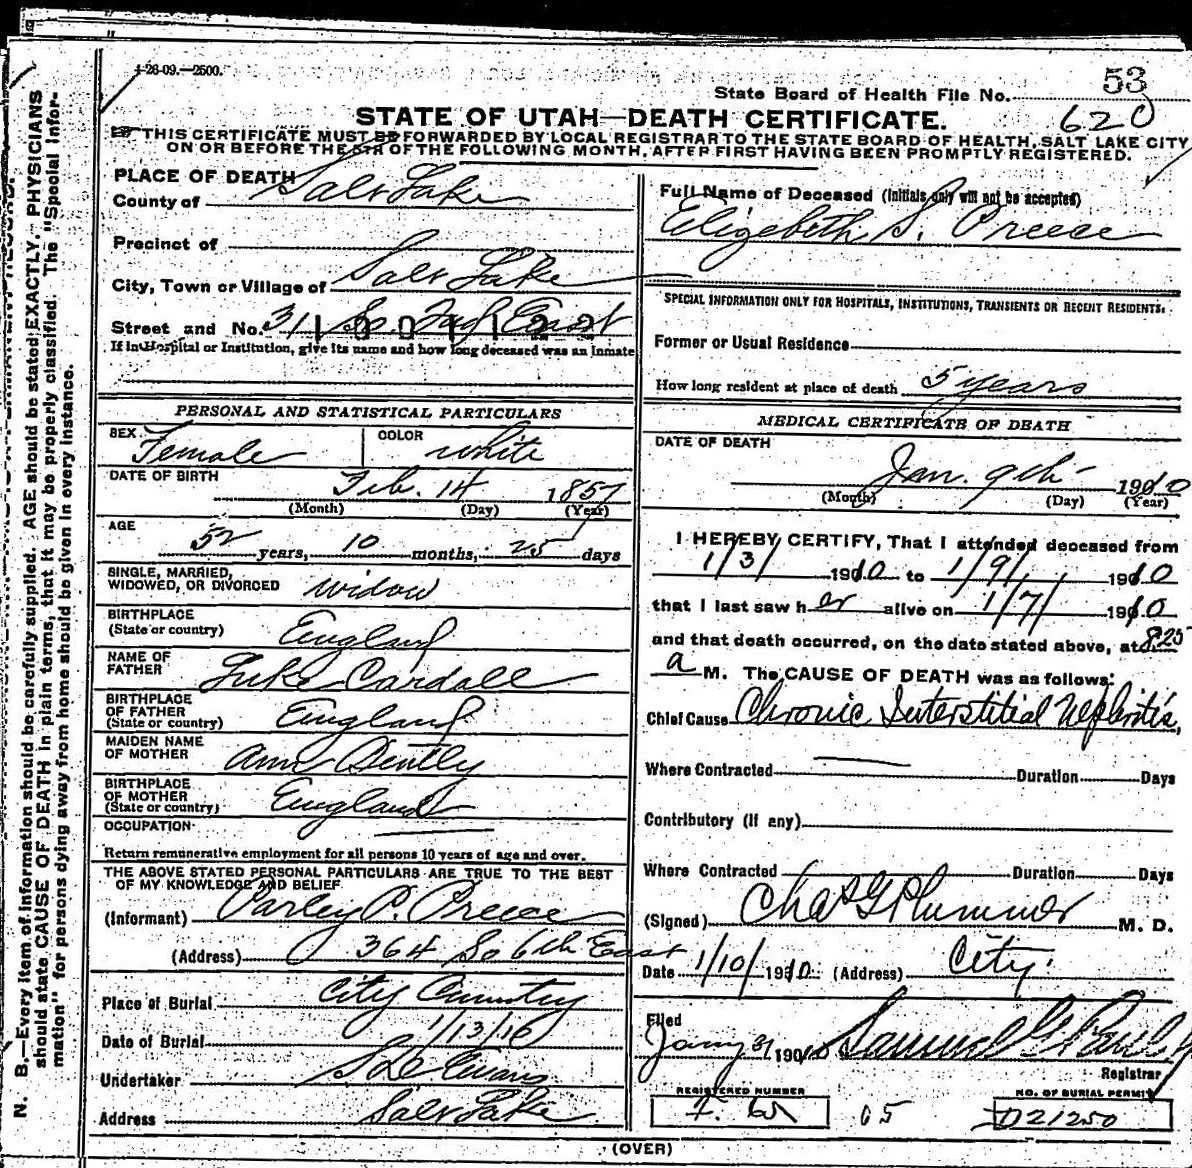 4-26-09.—2500.
53
State Board of Health File No.
620
STATE OF UTAH—DEATH CERTIFICATE.
THIS CERTIFICATE MUST BE FORWARDED BY LOCAL REGISTRAR TO THE STATE BOARD OF HEALTH, SALT LAKE CITY
ON OR BEFORE THE 5TH OF THE FOLLOWING MONTH, AFTER FIRST HAVING BEEN PROMPTLY REGISTERED.
N. B.—Every item of information should be carefully supplied. AGE should be stated EXACTLY. PHYSICIANS
should state CAUSE OF DEATH in plain terms, that it may be properly classified. The "Special Infor-
mation" for persons dying away from home should be given in every instance.
PLACE OF DEATH
County of Salt Lake
Precinct of
City, Town or Village of Salt Lake
Street and No. So East
If in Hospital or Institution, give its name and how long deceased was an Inmate
PERSONAL AND STATISTICAL PARTICULARS
SEX Female COLOR White
DATE OF BIRTH Feb. 14 1857
(Month) (Day) (Year)
AGE 52 years, 10 months, 25 days
SINGLE, MARRIED,
WIDOWED, OR DIVORCED widow
BIRTHPLACE
(State or country) England
NAME OF
FATHER Luke Cardall
BIRTHPLACE
OF FATHER
(State or country) England
MAIDEN NAME
OF MOTHER Ann Bently
BIRTHPLACE
OF MOTHER
(State or country) England
OCCUPATION
Return remunerative employment for all persons 10 years of age and over.
THE ABOVE STATED PERSONAL PARTICULARS ARE TRUE TO THE BEST
OF MY KNOWLEDGE AND BELIEF
(Informant) Parley P. Preece
(Address) 364 So 6th East
Place of Burial City Cemetry
Date of Burial 1/13/10
Undertaker Evans
Address Salt Lake
Full Name of Deceased (Initials only will not be accepted)
Elizebeth S. Preece
SPECIAL INFORMATION ONLY FOR HOSPITALS, INSTITUTIONS, TRANSIENTS OR RECENT RESIDENTS.
Former or Usual Residence
How long resident at place of death 5 years
MEDICAL CERTIFICATE OF DEATH
DATE OF DEATH
Jan. 9th 1910
(Month) (Day) (Year)
I HEREBY CERTIFY, That I attended deceased from
1/3/ 1910 to 1/9/ 1910
that I last saw her alive on 1/7/ 1910
and that death occurred, on the date stated above, at 8:25
a M. The CAUSE OF DEATH was as follows:
Chief Cause Chronic Interstitial Nephritis,
Where Contracted Duration Days
Contributory (If any)
Where Contracted Duration Days
(Signed) Chas G Plummer M. D.
Date 1/10/1910 (Address) City.
Filed
1910 Samuel G. Paul
Registrar
REGISTERED NUMBER
05
NO. OF BURIAL PERMIT
D21250
(OVER)